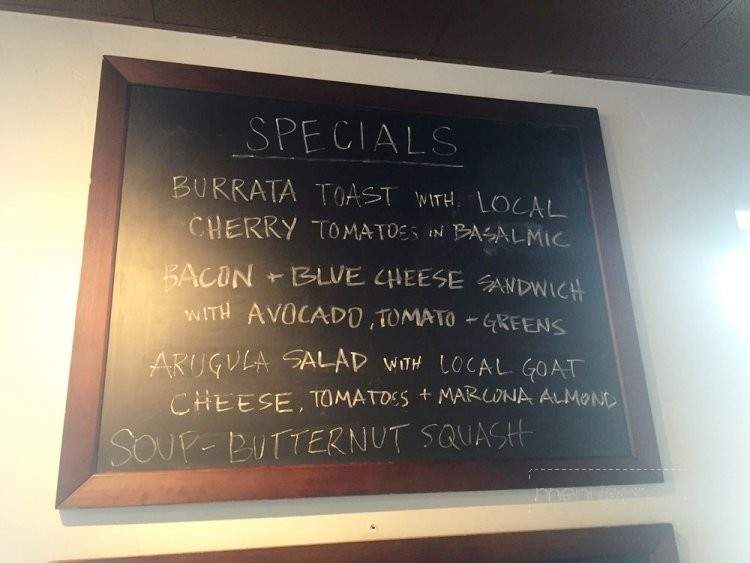 SPECIALS
BURRATA TOAST WITH LOCAL
CHERRY TOMATOES IN BASALMIC
BACON + BLUE CHEESE SANDWICH
WITH AVOCADO, TOMATO + GREENS
ARUGULA SALAD WITH LOCAL GOAT
CHEESE, TOMATOES + MARCONA ALMOND
SOUP - BUTTERNUT SQUASH